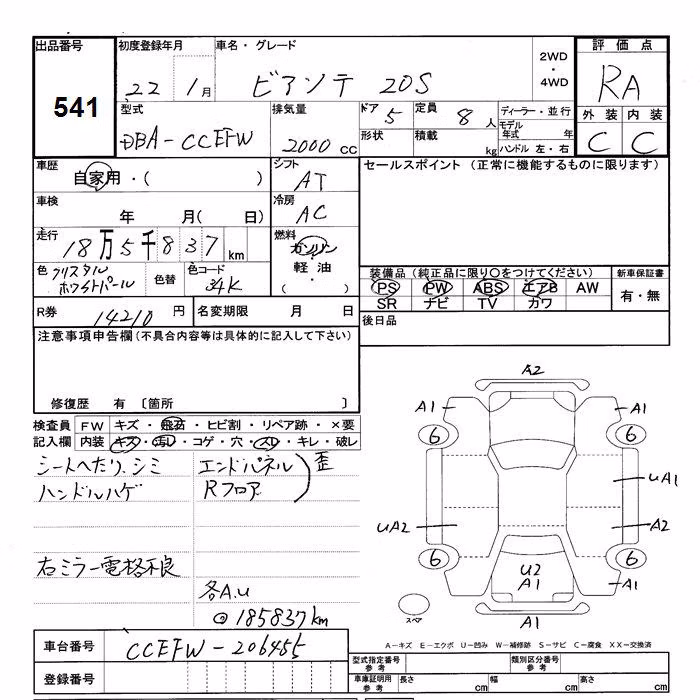 出品番号 初度登録年月 車名・グレード 2WD・4WD 評価点
541 22 1月 ビアンテ 20S RA
型式 排気量 ドア 5 定員 8人 ディーラー・並行 外装 内装
DBA-CCEFW 2000cc 形状 積載 kg モデル年式 年 ハンドル 左・右 C C
車歴 自家用・( ) シフト AT セールスポイント (正常に機能するものに限ります)
車検 年 月( 日) 冷房 AC
走行 18万5千837km 燃料 ガソリン・軽油・( )
色 クリスタルホワイトパール 色替 色コード 34K 装備品 (純正品に限り○をつけてください) 新車保証書
PS PW ABS エアB AW 有・無
SR ナビ TV カワ
R券 14210円 名変期限 月 日 後日品
注意事項申告欄(不具合内容等は具体的に記入して下さい)
修復歴 有 〔箇所 〕
検査員記入欄 FW キズ・飛石・ヒビ割・リペア跡・×要
内装 キズ・汚レ・コゲ・穴・スレ・キレ・破レ
シートヘたり、シミ エンドパネル 歪
ハンドルハゲ Rフロア
右ミラー電格不良
各A.U
◎185837km
A2
A1 A1
6 6
UA1
UA2 A2
6 6
U2
A1 A1
スペア A1
A-キズ E-エクボ U-凹み W-補修跡 S-サビ C-腐食 XX-交換済
車台番号 CCEFW-206455
型式指定番号 参考 類別区分番号 参考
登録番号 車庫証明用 参考 長さ cm 幅 cm 高さ cm